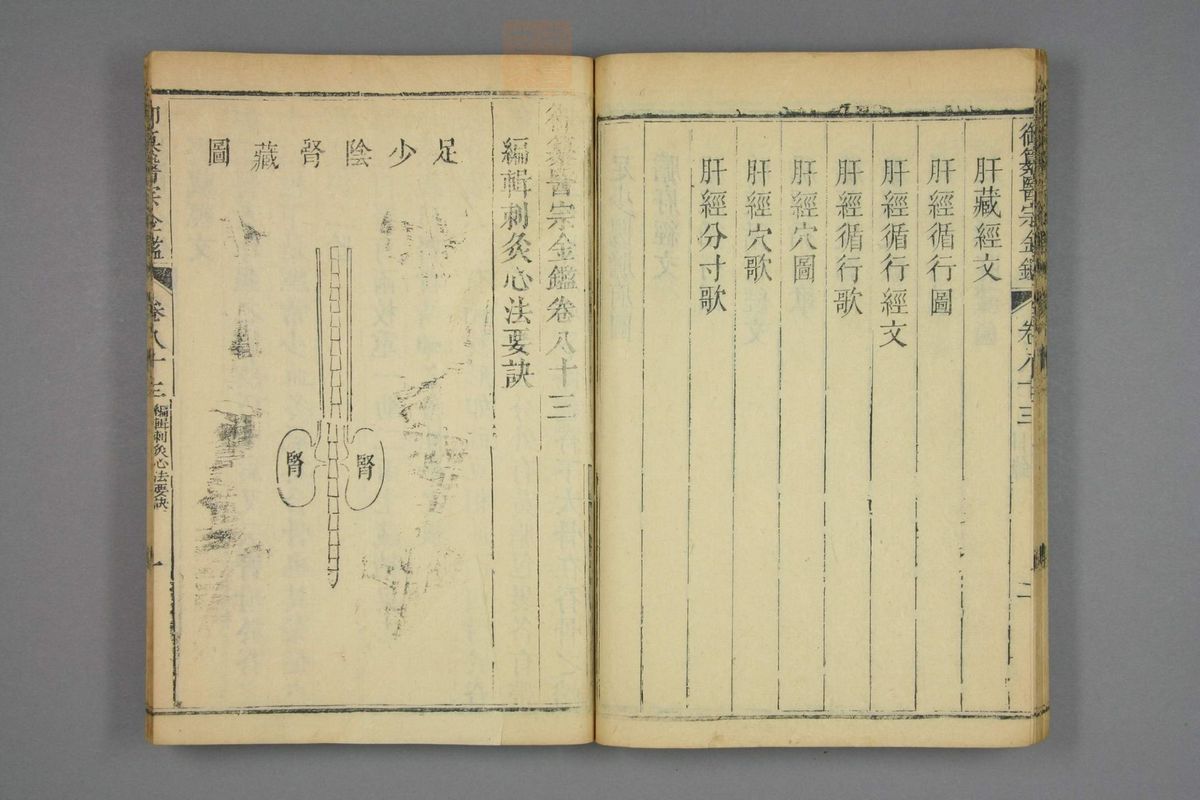 御纂醫宗金鑑 卷八十三 二
肝藏經文
肝經循行圖
肝經循行經文
肝經循行歌
肝經穴圖
肝經穴歌
肝經分寸歌
御纂醫宗金鑑卷八十三
編輯刺灸心法要訣
足少陰腎藏圖
腎
腎
御纂醫宗金鑑 卷八十三 編輯刺灸心法要訣 一